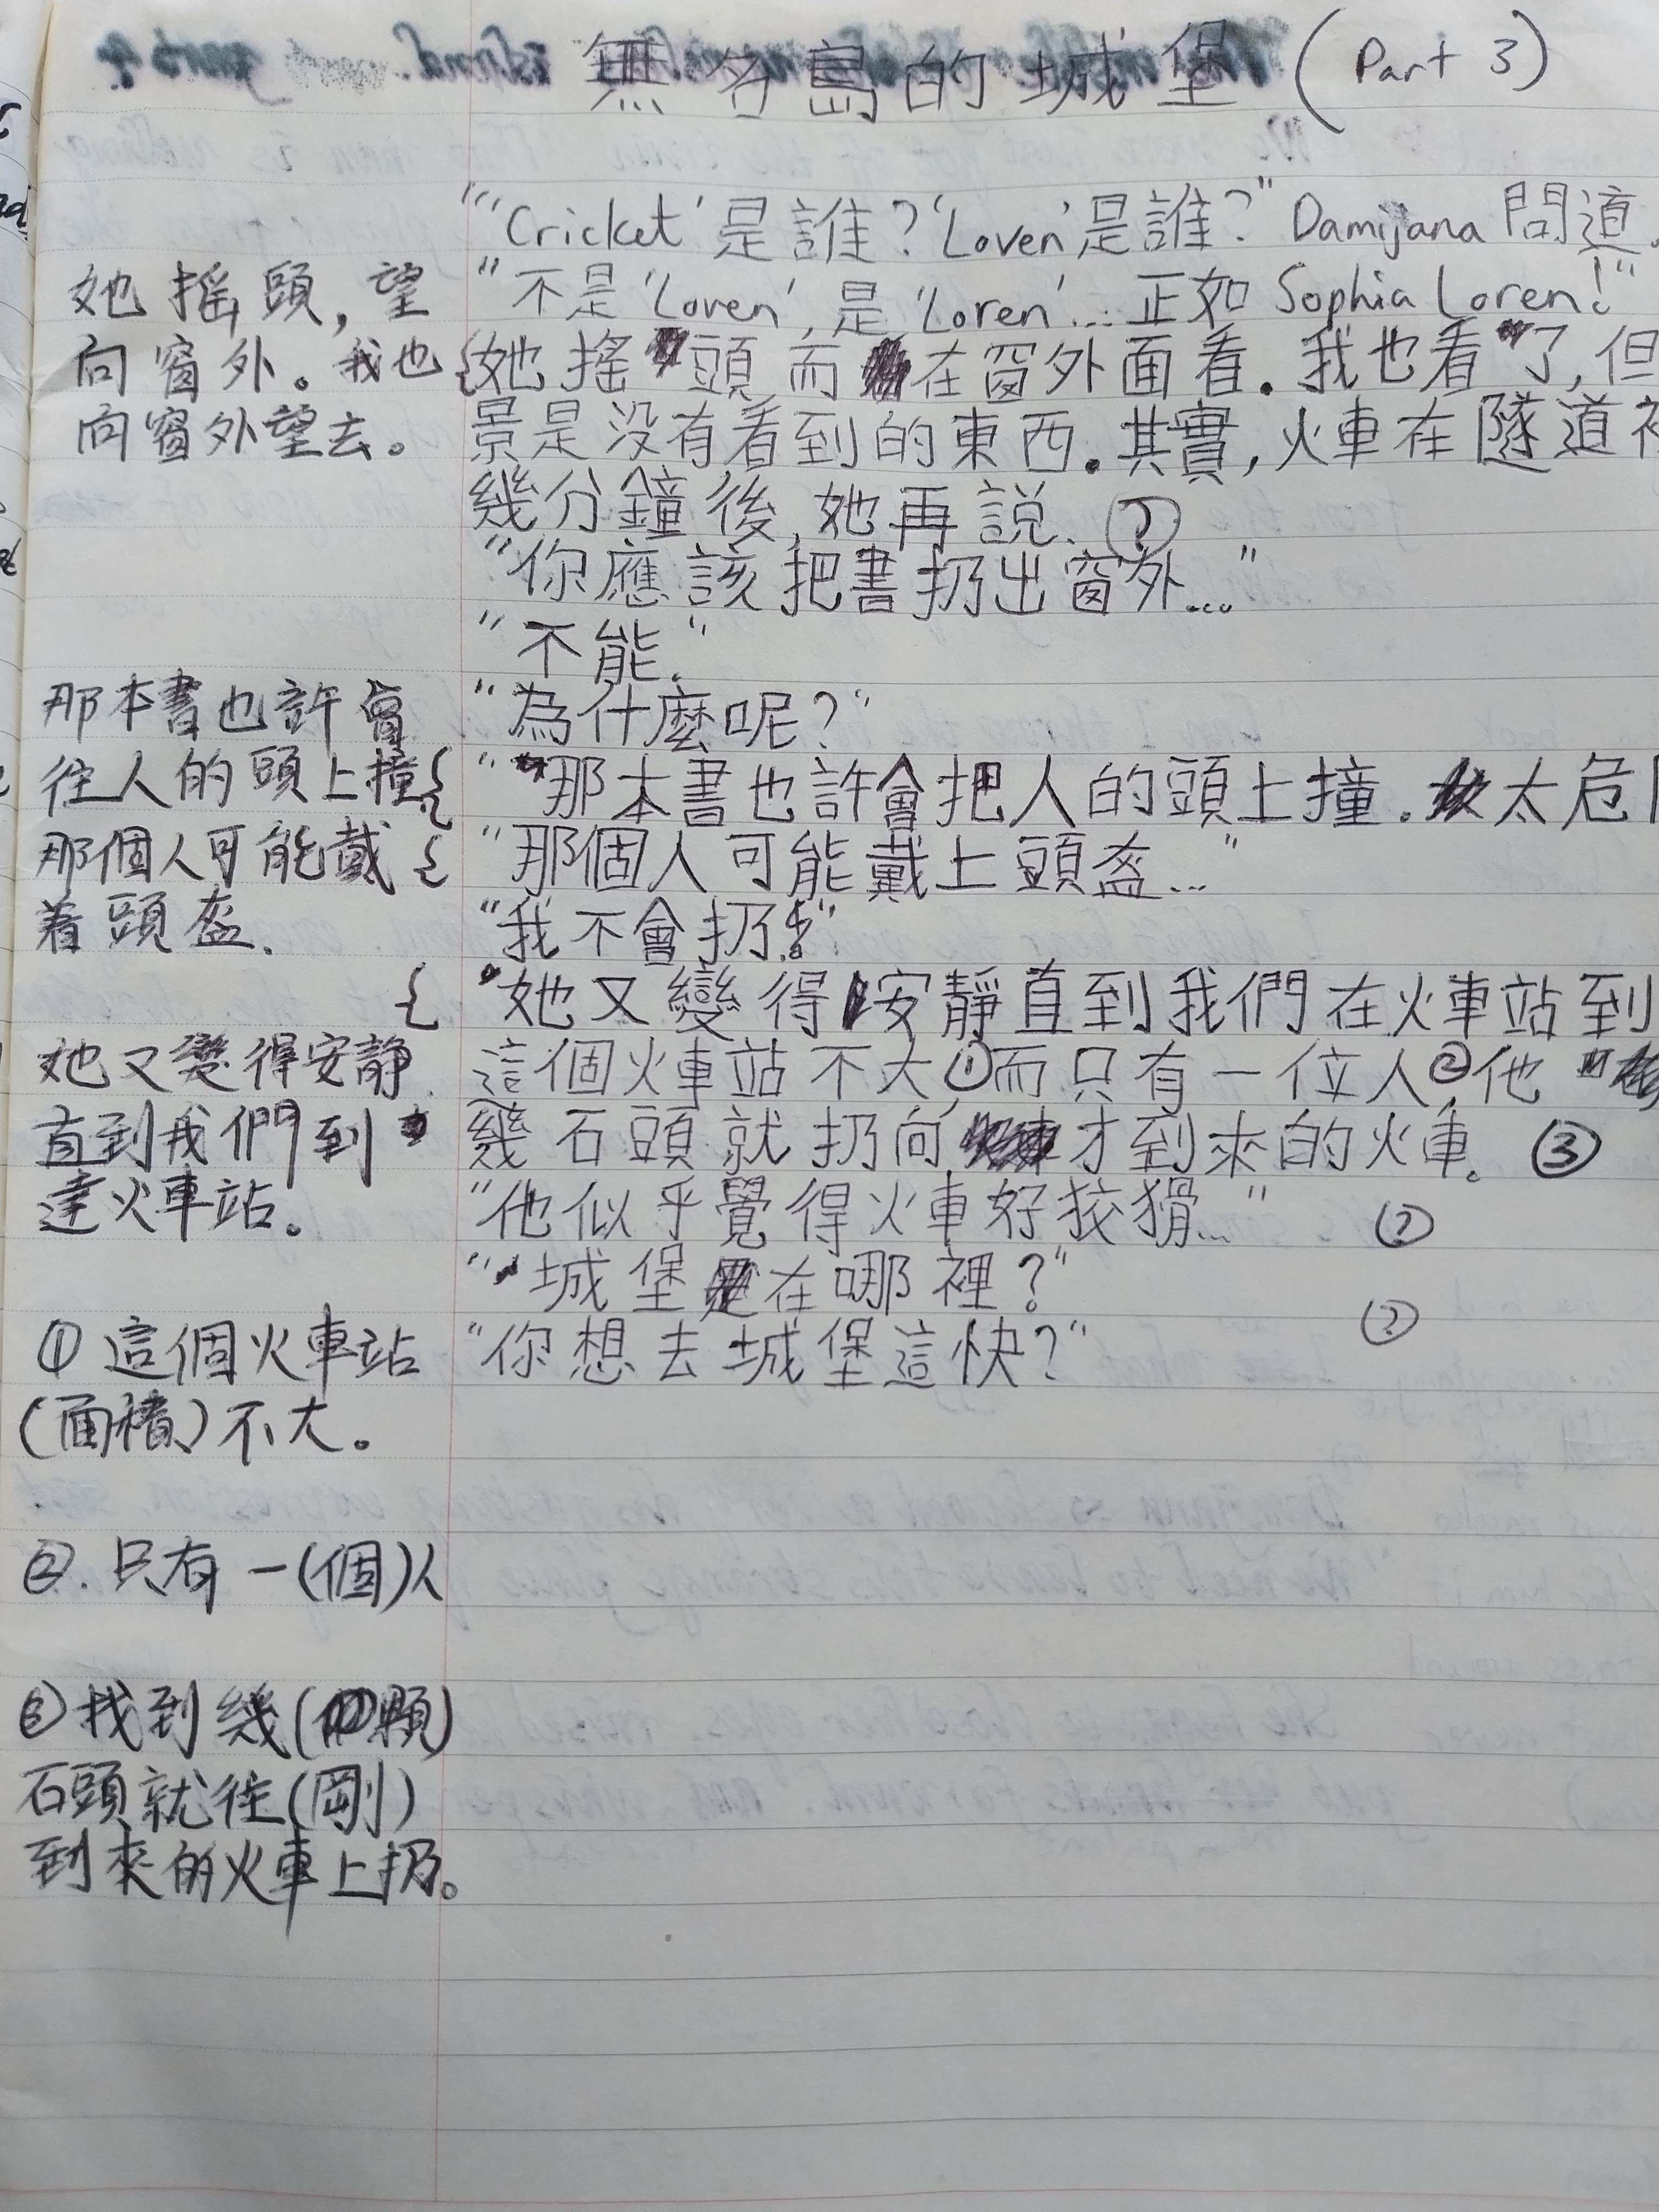 無名島的城堡 (Part 3)
"'Cricket' 是誰？'Loven' 是誰？" Damijana 問道.
"不是 'Loven', 是 'Loren'... 正如 Sophia Loren!"
她搖頭而在窗外面看. 我也看了, 但
景是没有看到的東西. 其實, 火車在隧道
幾分鐘後, 她再説. ?
"你應該把書扔出窗外..."
"不能."
"為什麼呢?"
"那本書也許會把人的頭上撞. 太危
"那個人可能戴上頭盔..."
"我不會扔!"
她又變得安靜直到我們在火車站到
這個火車站不大①而只有一位人②, 他
幾石頭就扔向才到來的火車. ③
"他似乎覺得火車好狡猾..." ?
"城堡在哪裡?"
"你想去城堡這快?" ?
她摇頭, 望
向窗外。我也
向窗外望去。
那本書也許會
往人的頭上撞
那個人可能戴
着頭盔.
她又变得安静
直到我們到
達火車站。
① 這個火車站
(面積)不大。
②. 只有一(個)人
③ 找到幾(顆)
石頭就往(剛)
到來的火車上扔。